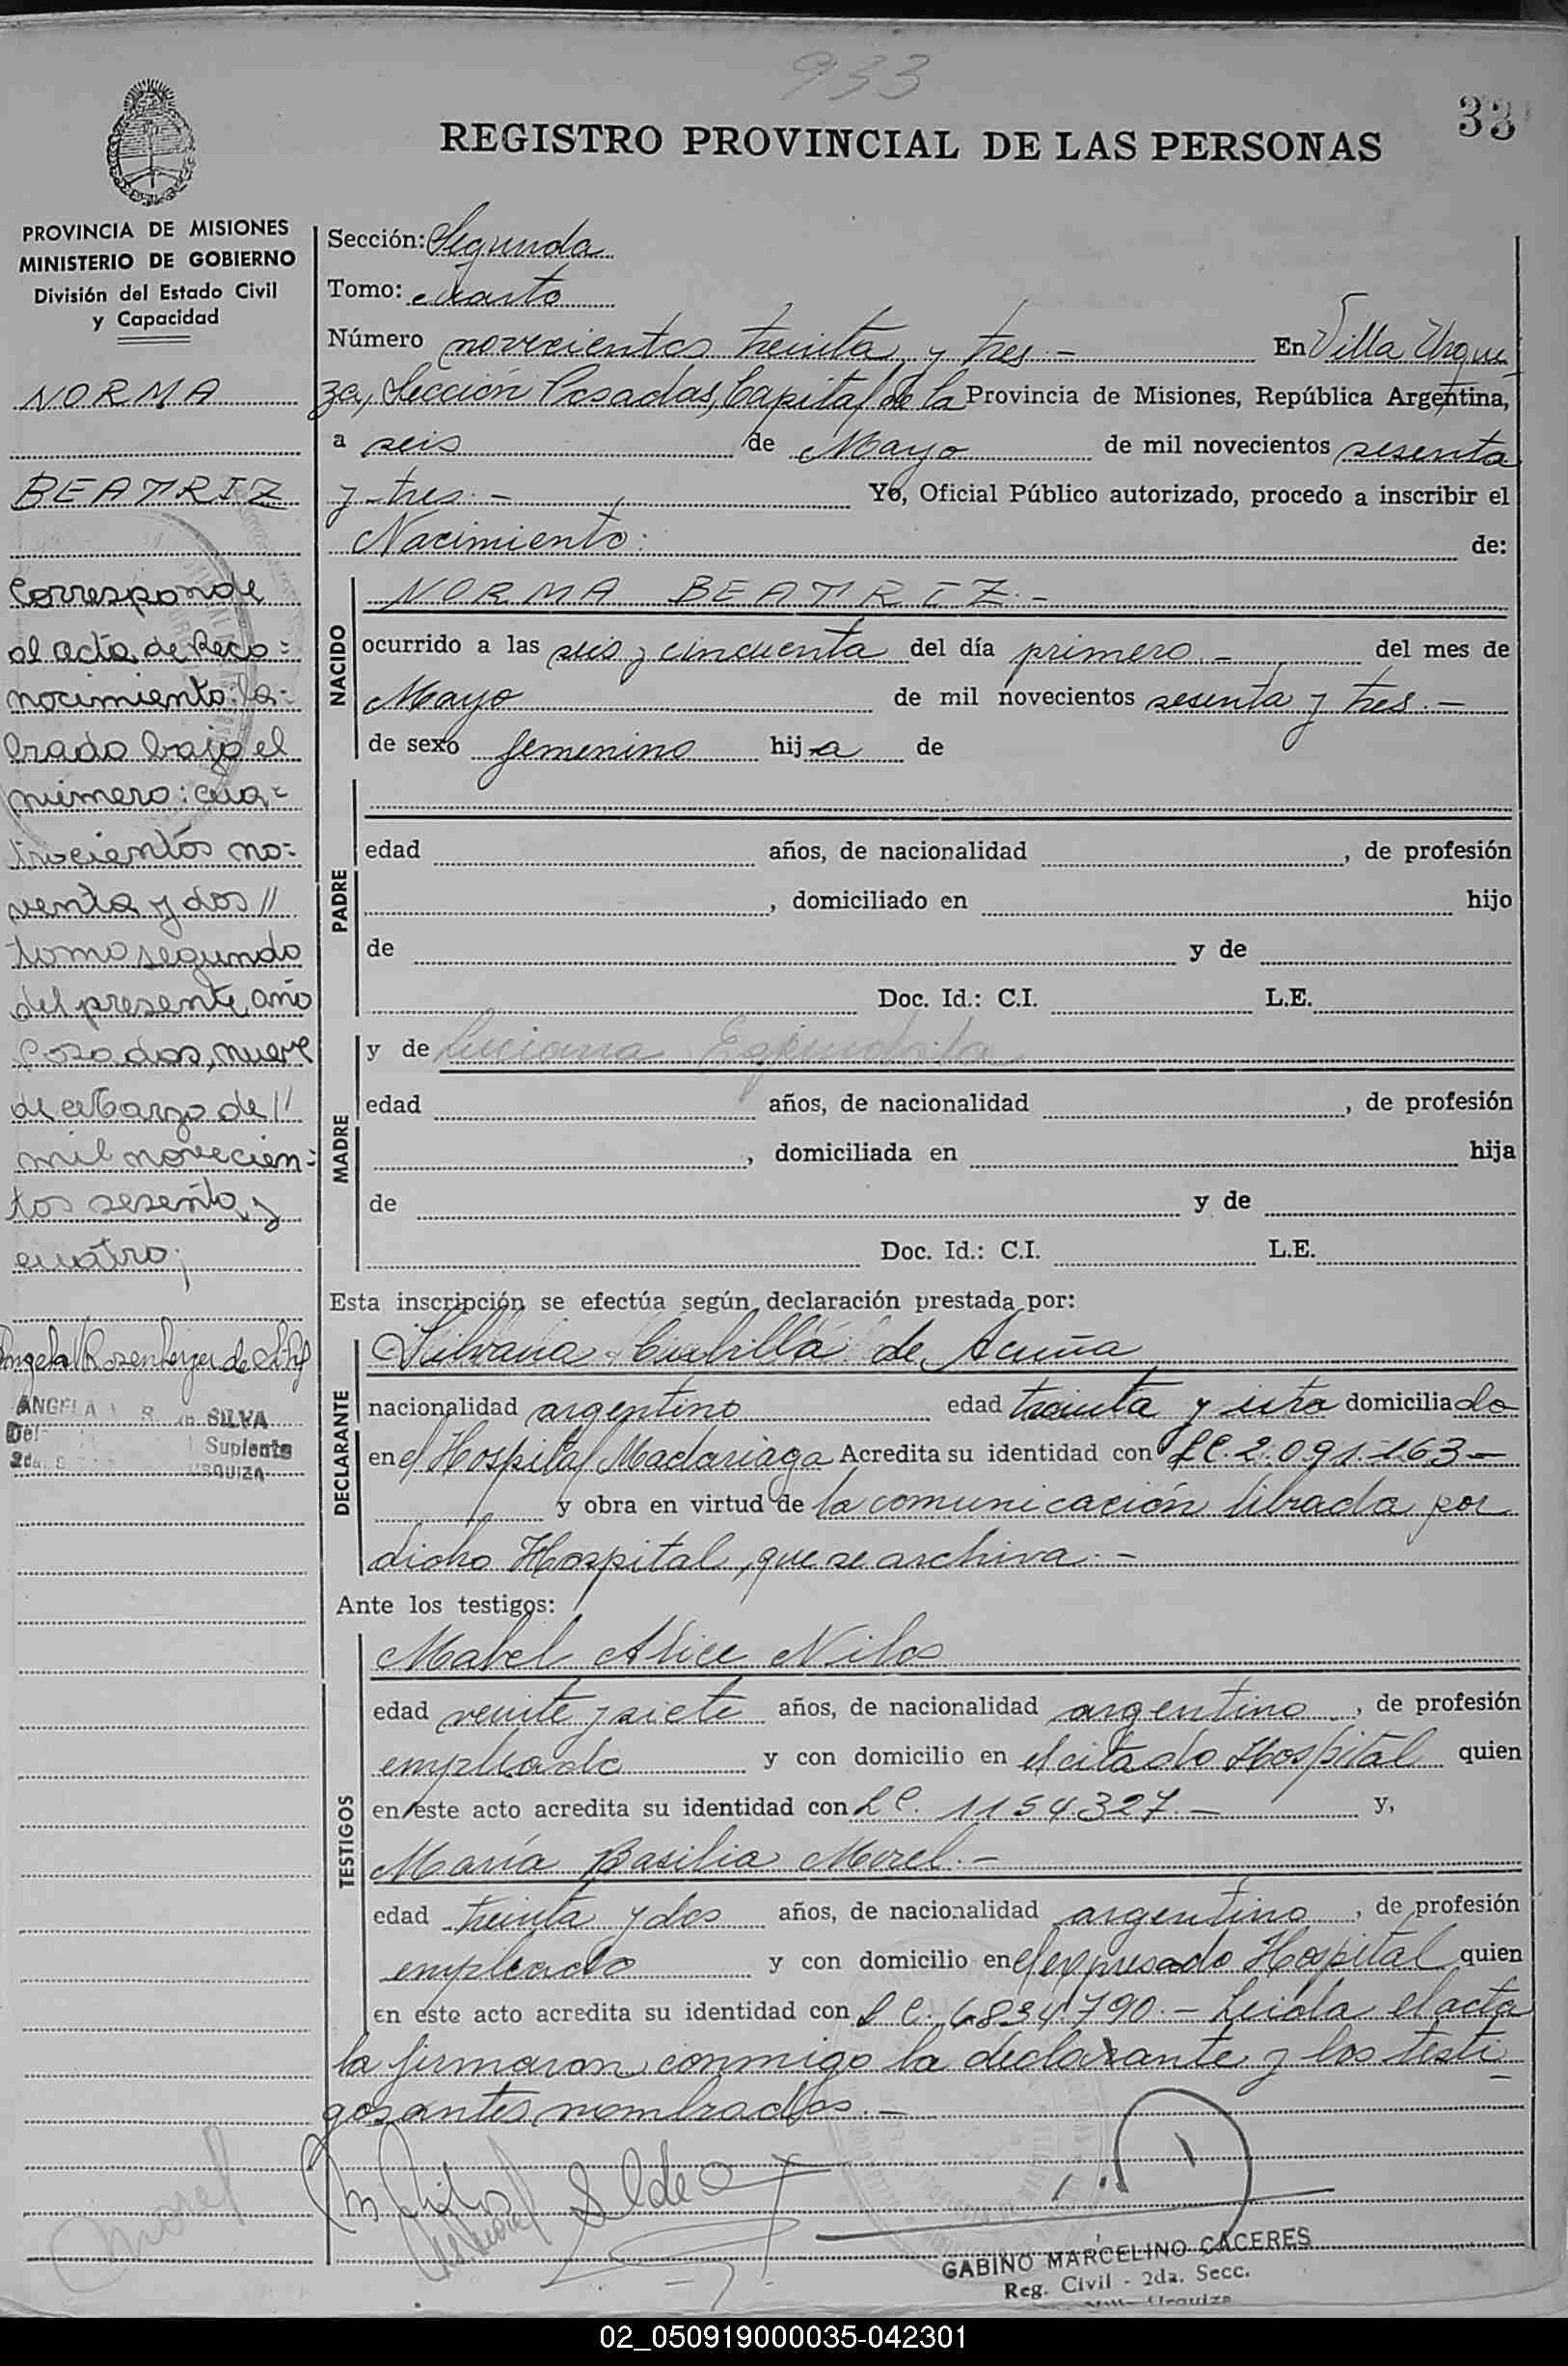 933
33
REGISTRO PROVINCIAL DE LAS PERSONAS
PROVINCIA DE MISIONES
MINISTERIO DE GOBIERNO
División del Estado Civil
y Capacidad
NORMA
BEATRIZ
Corresponde
al acta de Reco=
nocimiento: la=
brado bajo el
número: cua=
trocientos no=
venta y dos //
tomo segundo
del presente año
Posadas, nueve
de Marzo de //
mil novecien=
tos sesenta y
cuatro.
Angela Rosenberger de Silva
ANGELA SILVA
Suplente
2da. URQUIZA
Sección: Segunda
Tomo: cuarto
Número novecientos treinta y tres.- En Villa Urqui
za, Sección Posadas, Capital de la Provincia de Misiones, República Argentina,
a seis de Mayo de mil novecientos sesenta
y tres.- Yo, Oficial Público autorizado, procedo a inscribir el
Nacimiento: de:
NACIDO
NORMA BEATRIZ.-
ocurrido a las seis y cincuenta del día primero.- del mes de
Mayo de mil novecientos sesenta y tres.-
de sexo femenino hij a de
PADRE
edad años, de nacionalidad , de profesión
, domiciliado en hijo
de y de
Doc. Id.: C.I. L.E.
MADRE
y de Luciana Espindola
edad años, de nacionalidad , de profesión
, domiciliada en hija
de y de
Doc. Id.: C.I. L.E.
Esta inscripción se efectúa según declaración prestada por:
DECLARANTE
Silvana de Acuña
nacionalidad argentino edad treinta y domiciliado
en el Hospital Madariaga Acredita su identidad con L.C. 2.091.163-
y obra en virtud de la comunicación librada por
dicho Hospital, que se archiva.-
Ante los testigos:
TESTIGOS
Mabel Alice Nilos
edad veinte y siete años, de nacionalidad argentino , de profesión
empleado y con domicilio en el citado Hospital quien
en este acto acredita su identidad con L.C. 1154.327.- y,
María Basilia Morel.-
edad treinta y dos años, de nacionalidad argentino , de profesión
empleado y con domicilio en el expresado Hospital quien
en este acto acredita su identidad con L.C. 6834790.- Leida el acta
la firmaron conmigo la declarante y los testi
gos antes nombrados.-
Morel
GABINO MARCELINO CACERES
Reg. Civil - 2da. Secc.
Villa Urquiza
02_050919000035-042301